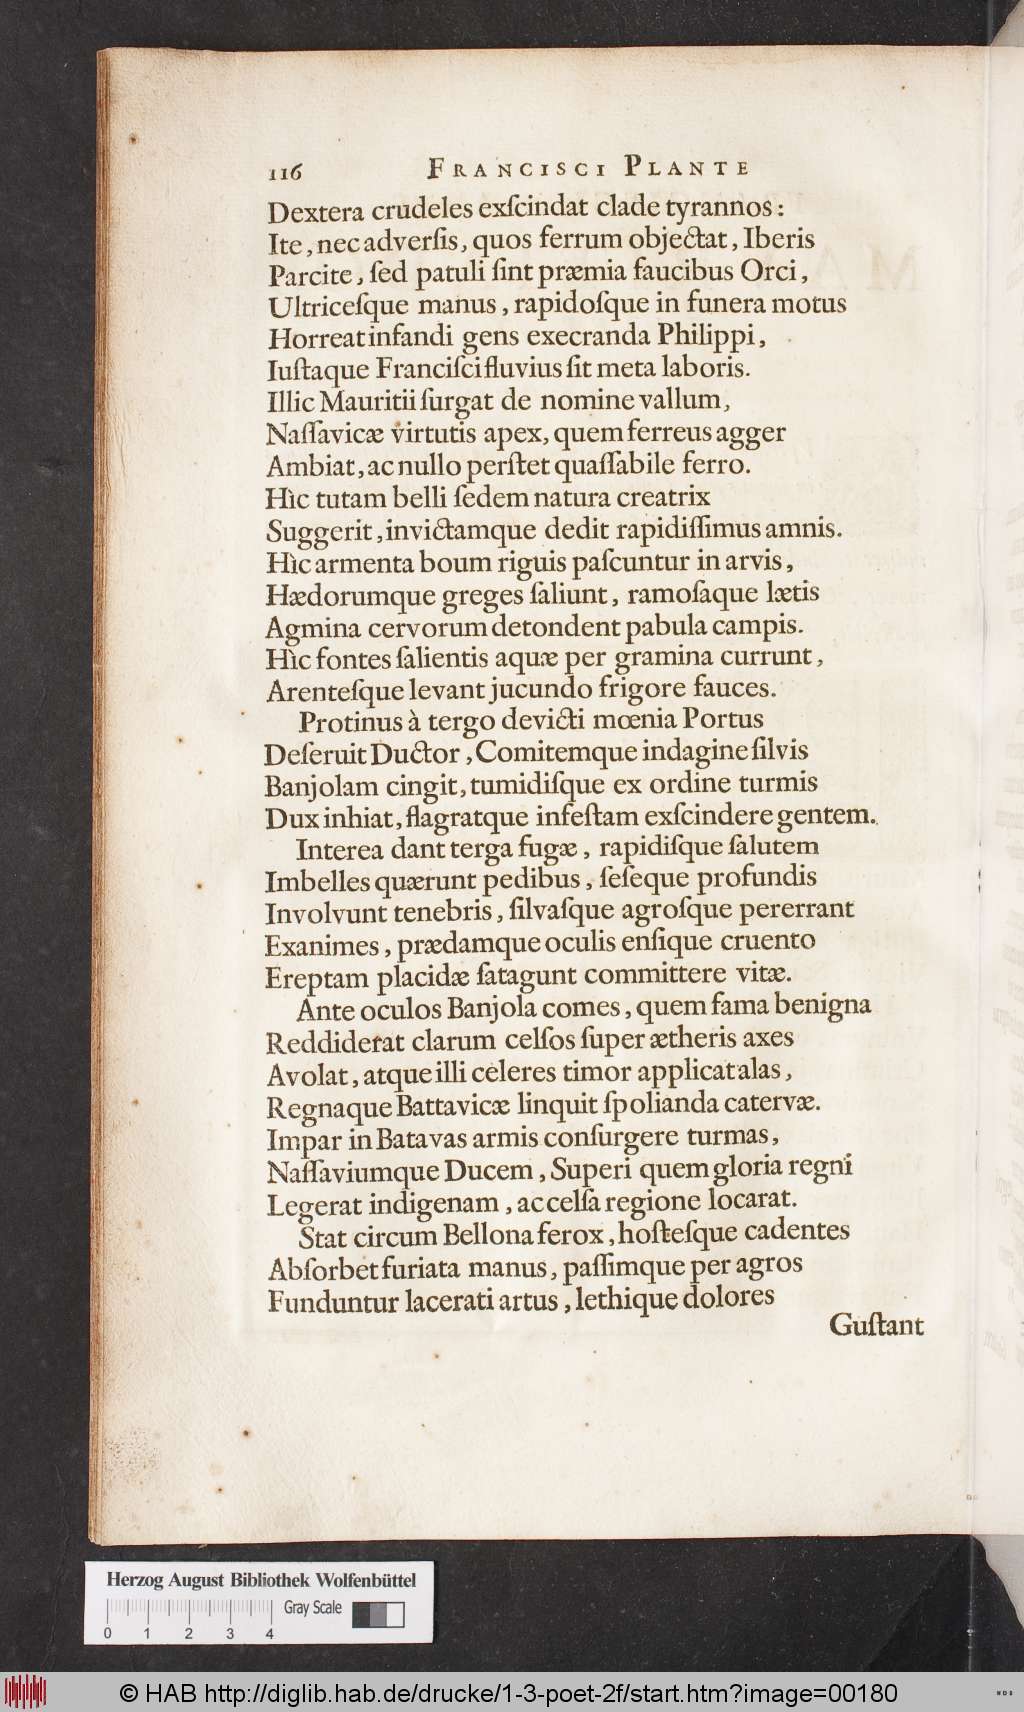 116 FRANCISCI PLANTE
Dextera crudeles exſcindat clade tyrannos:
Ite, nec adverſis, quos ferrum objectat, Iberis
Parcite, ſed patuli ſint præmia faucibus Orci,
Ultriceſque manus, rapidoſque in funera motus
Horreat infandi gens execranda Philippi,
Iuſtaque Franciſci fluvius ſit meta laboris.
Illic Mauritii ſurgat de nomine vallum,
Naſſavicæ virtutis apex, quem ferreus agger
Ambiat, ac nullo perſtet quaſſabile ferro.
Hìc tutam belli ſedem natura creatrix
Suggerit, invictamque dedit rapidiſſimus amnis.
Hìc armenta boum riguis paſcuntur in arvis,
Hædorumque greges ſaliunt, ramoſaque lætis
Agmina cervorum detondent pabula campis.
Hìc fontes ſalientis aquæ per gramina currunt,
Arenteſque levant jucundo frigore fauces.
Protinus à tergo devicti mœnia Portus
Deſeruit Ductor, Comitemque indagine ſilvis
Banjolam cingit, tumidiſque ex ordine turmis
Dux inhiat, flagratque infeſtam exſcindere gentem.
Interea dant terga fugæ, rapidiſque ſalutem
Imbelles quærunt pedibus, ſeſeque profundis
Involvunt tenebris, ſilvaſque agroſque pererrant
Exanimes, prædamque oculis enſique cruento
Ereptam placidæ ſatagunt committere vitæ.
Ante oculos Banjola comes, quem fama benigna
Reddiderat clarum celſos ſuper ætheris axes
Avolat, atque illi celeres timor applicat alas,
Regnaque Battavicæ linquit ſpolianda catervæ.
Impar in Batavas armis conſurgere turmas,
Naſſaviumque Ducem, Superi quem gloria regni
Legerat indigenam, ac celſa regione locarat.
Stat circum Bellona ferox, hoſteſque cadentes
Abſorbet furiata manus, paſſimque per agros
Funduntur lacerati artus, lethique dolores
Guſtant
Herzog August Bibliothek Wolfenbüttel
Gray Scale
0 1 2 3 4
© HAB http://diglib.hab.de/drucke/1-3-poet-2f/start.htm?image=00180